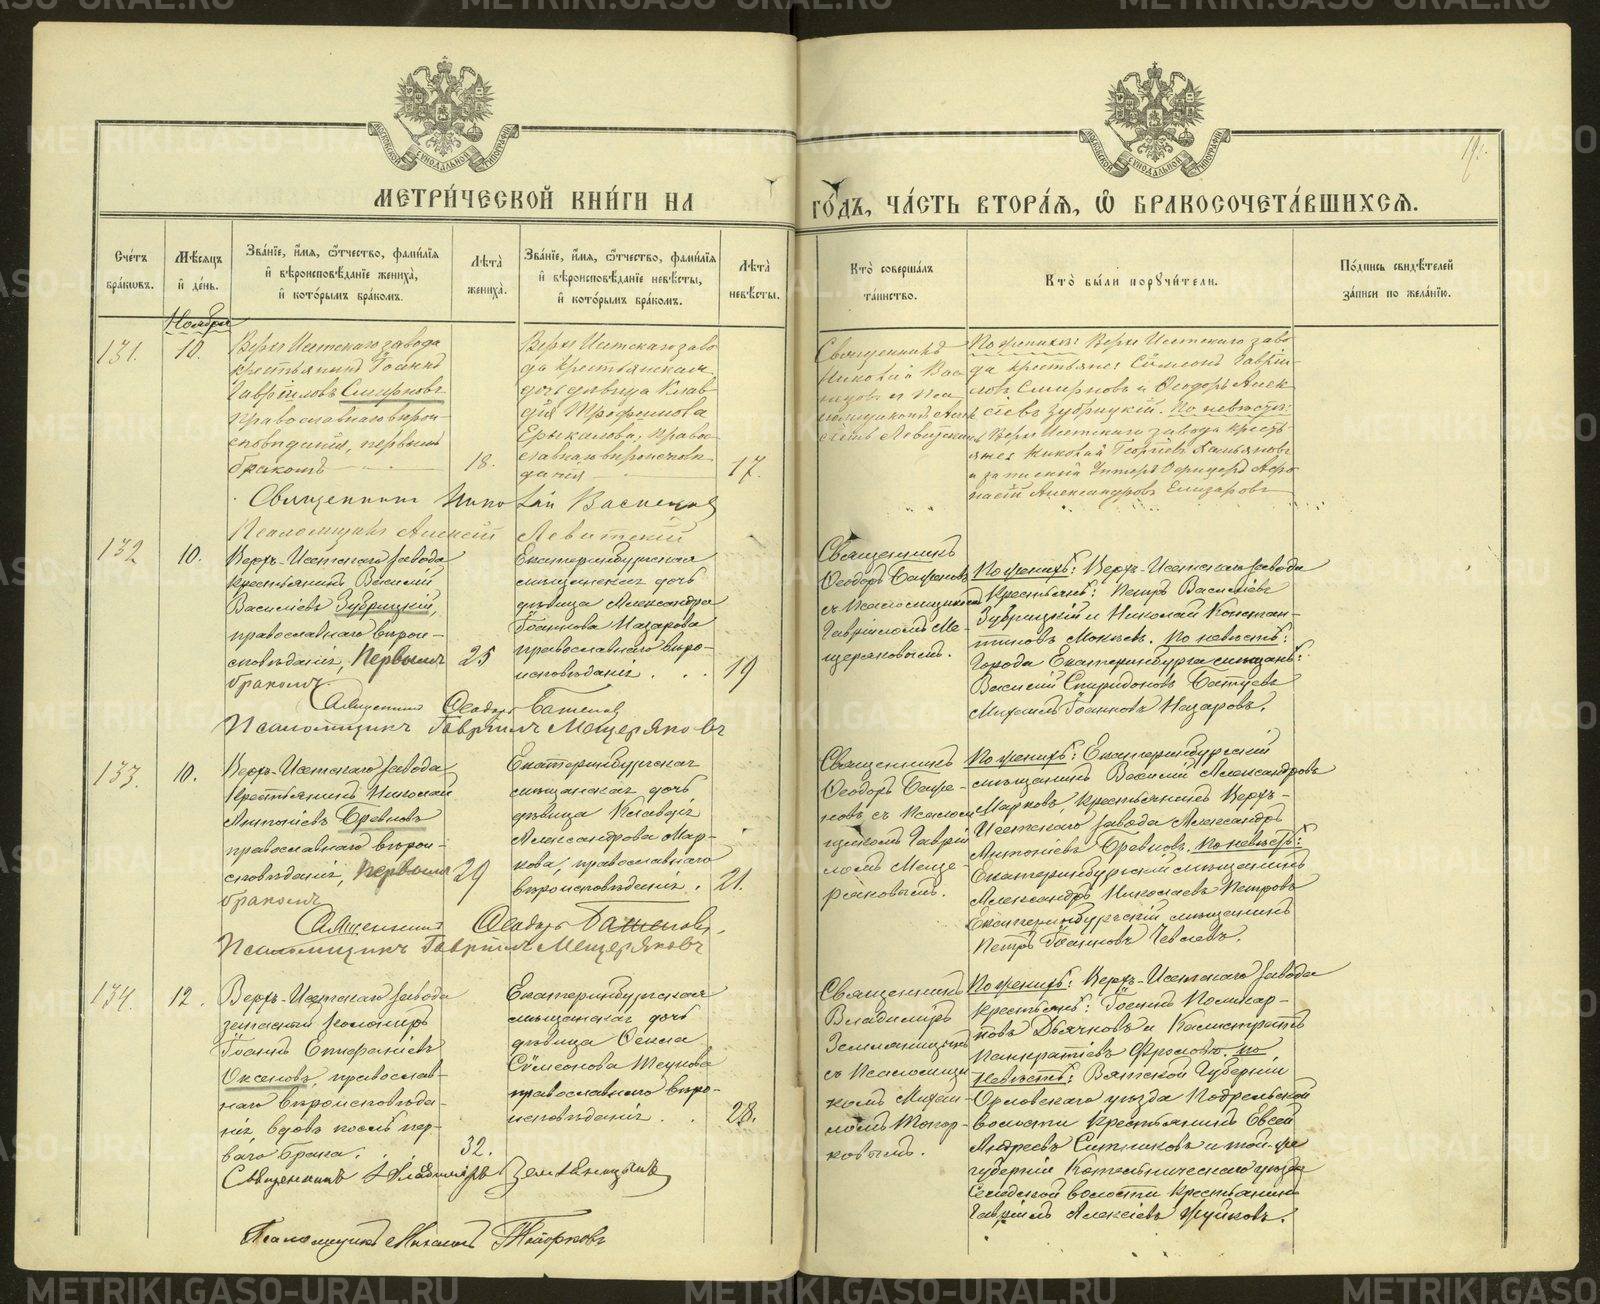 МЕТРИ́ЧЕСКОЙ КНИ́ГИ НА
ГО́ДЪ, ЧА́СТЬ ВТОРА́Я, Ѡ БРАКОСОЧЕТА́ВШИХСЯ.
Сче́тъ бра́ковъ.
Мѣ́сяцъ и́ де́нь.
Зва́нїе, и́мя, ѻ́тчество, фами́лїя и́ вѣроисповѣ́данїе жениха̀, и́ кото́рымъ бра́комъ.
Лѣ́та жениха̀.
Зва́нїе, и́мя, ѻ́тчество, фами́лїя и́ вѣроисповѣ́данїе невѣ́сты, и́ кото́рымъ бра́комъ.
Лѣ́та невѣ́сты.
Кто̀ соверша́лъ та́инство.
Кто̀ бы́ли порꙋчи́тели.
По́дпись свидѣ́телей за́писи по жела́нїю.
Ноябрь
131.
10.
Верхъ Исетскаго завода
крестьянинъ Іоаннъ
Гавріиловъ Смирновъ
православнаго вѣрои-
сповѣданія, первымъ
бракомъ
18.
Верхъ Исетскаго заво
да крестьянская
дочь дѣвица Клав-
дія Трофимова
Ерыкалова, право-
славнаго вѣроисповѣ
данія
17.
Священникъ
Николай Вас
нецовъ и Пса
ломщикъ Алек
сѣй Левитскій
По женихѣ: Верхъ Исетскаго заво
да крестьяне Сѵмеонъ Гаврі-
ловъ Смирновъ и Ѳеодоръ Алек
сѣевъ Зубрицкій. По невѣстѣ:
Верхъ Исетскаго завода кресть-
яне Николай Георгіевъ
и запасный Унтеръ Офицеръ Аѳо
насій Александровъ Елизаровъ
Священникъ Николай Васнецовъ
Псаломщикъ Алексѣй Левитскій
132
10.
Верхъ-Исетскаго завода
крестьянинъ Василій
Василіевъ Зубрицкій,
православнаго вѣрои-
сповѣданія, Первымъ
бракомъ
25
Екатеринбургская
мѣщанская дочь
дѣвица Александра
Іоаннова Назарова
православнаго вѣро-
исповѣданія . . .
19
Священникъ
Ѳеодоръ Баженовъ
съ Псаломщикомъ
Гавріиломъ Ме-
щеряковымъ.
По женихѣ: Верхъ-Исетскаго завода
крестьянѣ: Петръ Василіевъ
Зубрицкій и Николай Констан-
тиновъ Мокѣевъ. По невѣстѣ:
Города Екатеринбурга мѣщанѣ:
Василій Спиридоновъ Батуевъ
Михаилъ Іоанновъ Назаровъ.
Священникъ Ѳеодоръ Баженовъ
Псаломщикъ Гавріилъ Мещеряковъ
133.
10.
Верхъ-Исетскаго завода
крестьянинъ Николай
Антоніевъ Бревновъ
православнаго вѣрои-
сповѣданія, Первымъ
бракомъ
29
Екатеринбургская
мѣщанская дочь
дѣвица Клавдія
Александрова Мар-
кова, православнаго
вѣроисповѣданія.
21.
Священникъ
Ѳеодоръ Баже-
новъ съ Псалом
щикомъ Гаврі
ломъ Меще
ряковымъ.
По женихѣ: Екатеринбургскій
мѣщанинъ Василій Александровъ
Марковъ, крестьянинъ Верхъ-
Исетскаго завода Александръ
Антоніевъ Бревновъ. По невѣстѣ:
Екатеринбургскій мѣщанинъ
Александръ Николаевъ Петровъ
Екатеринбургскій мѣщанинъ
Петръ Іоанновъ
Священникъ Ѳеодоръ Баженовъ
Псаломщикъ Гавріилъ Мещеряковъ
134.
12.
Верхъ-Исетскаго завода
запасный
Іоаннъ Епифаніевъ
Аксеновъ, православ-
наго вѣроисповѣда-
нія, вдовъ послѣ пер-
ваго брака.
32.
Екатеринбургская
мѣщанская дочь
дѣвица Ѳекла
Сѵмеонова
православнаго вѣро-
исповѣданія . .
28.
Священникъ
Владиміръ
Земляницынъ
съ Псаломщи
комъ Михаи-
ломъ Топор-
ковымъ.
По женихѣ: Верхъ-Исетскаго завода
крестьянѣ: Іоаннъ Поликар-
повъ Дьячковъ и Калистратъ
Панкратіевъ Фроловъ. По
Невѣстѣ: Вятской Губерніи
Орловскаго уѣзда Подрельской
волости крестьянинъ Евсей
Андреевъ Ситниковъ и той-же
губерніи Котельническаго уѣзда
волости крестьянинъ
Гавріилъ Алексіевъ Жуйковъ.
Священникъ Владиміръ Земляницынъ
Псаломщикъ Михаилъ Топорковъ
METRIKI.GASO-URAL.RU